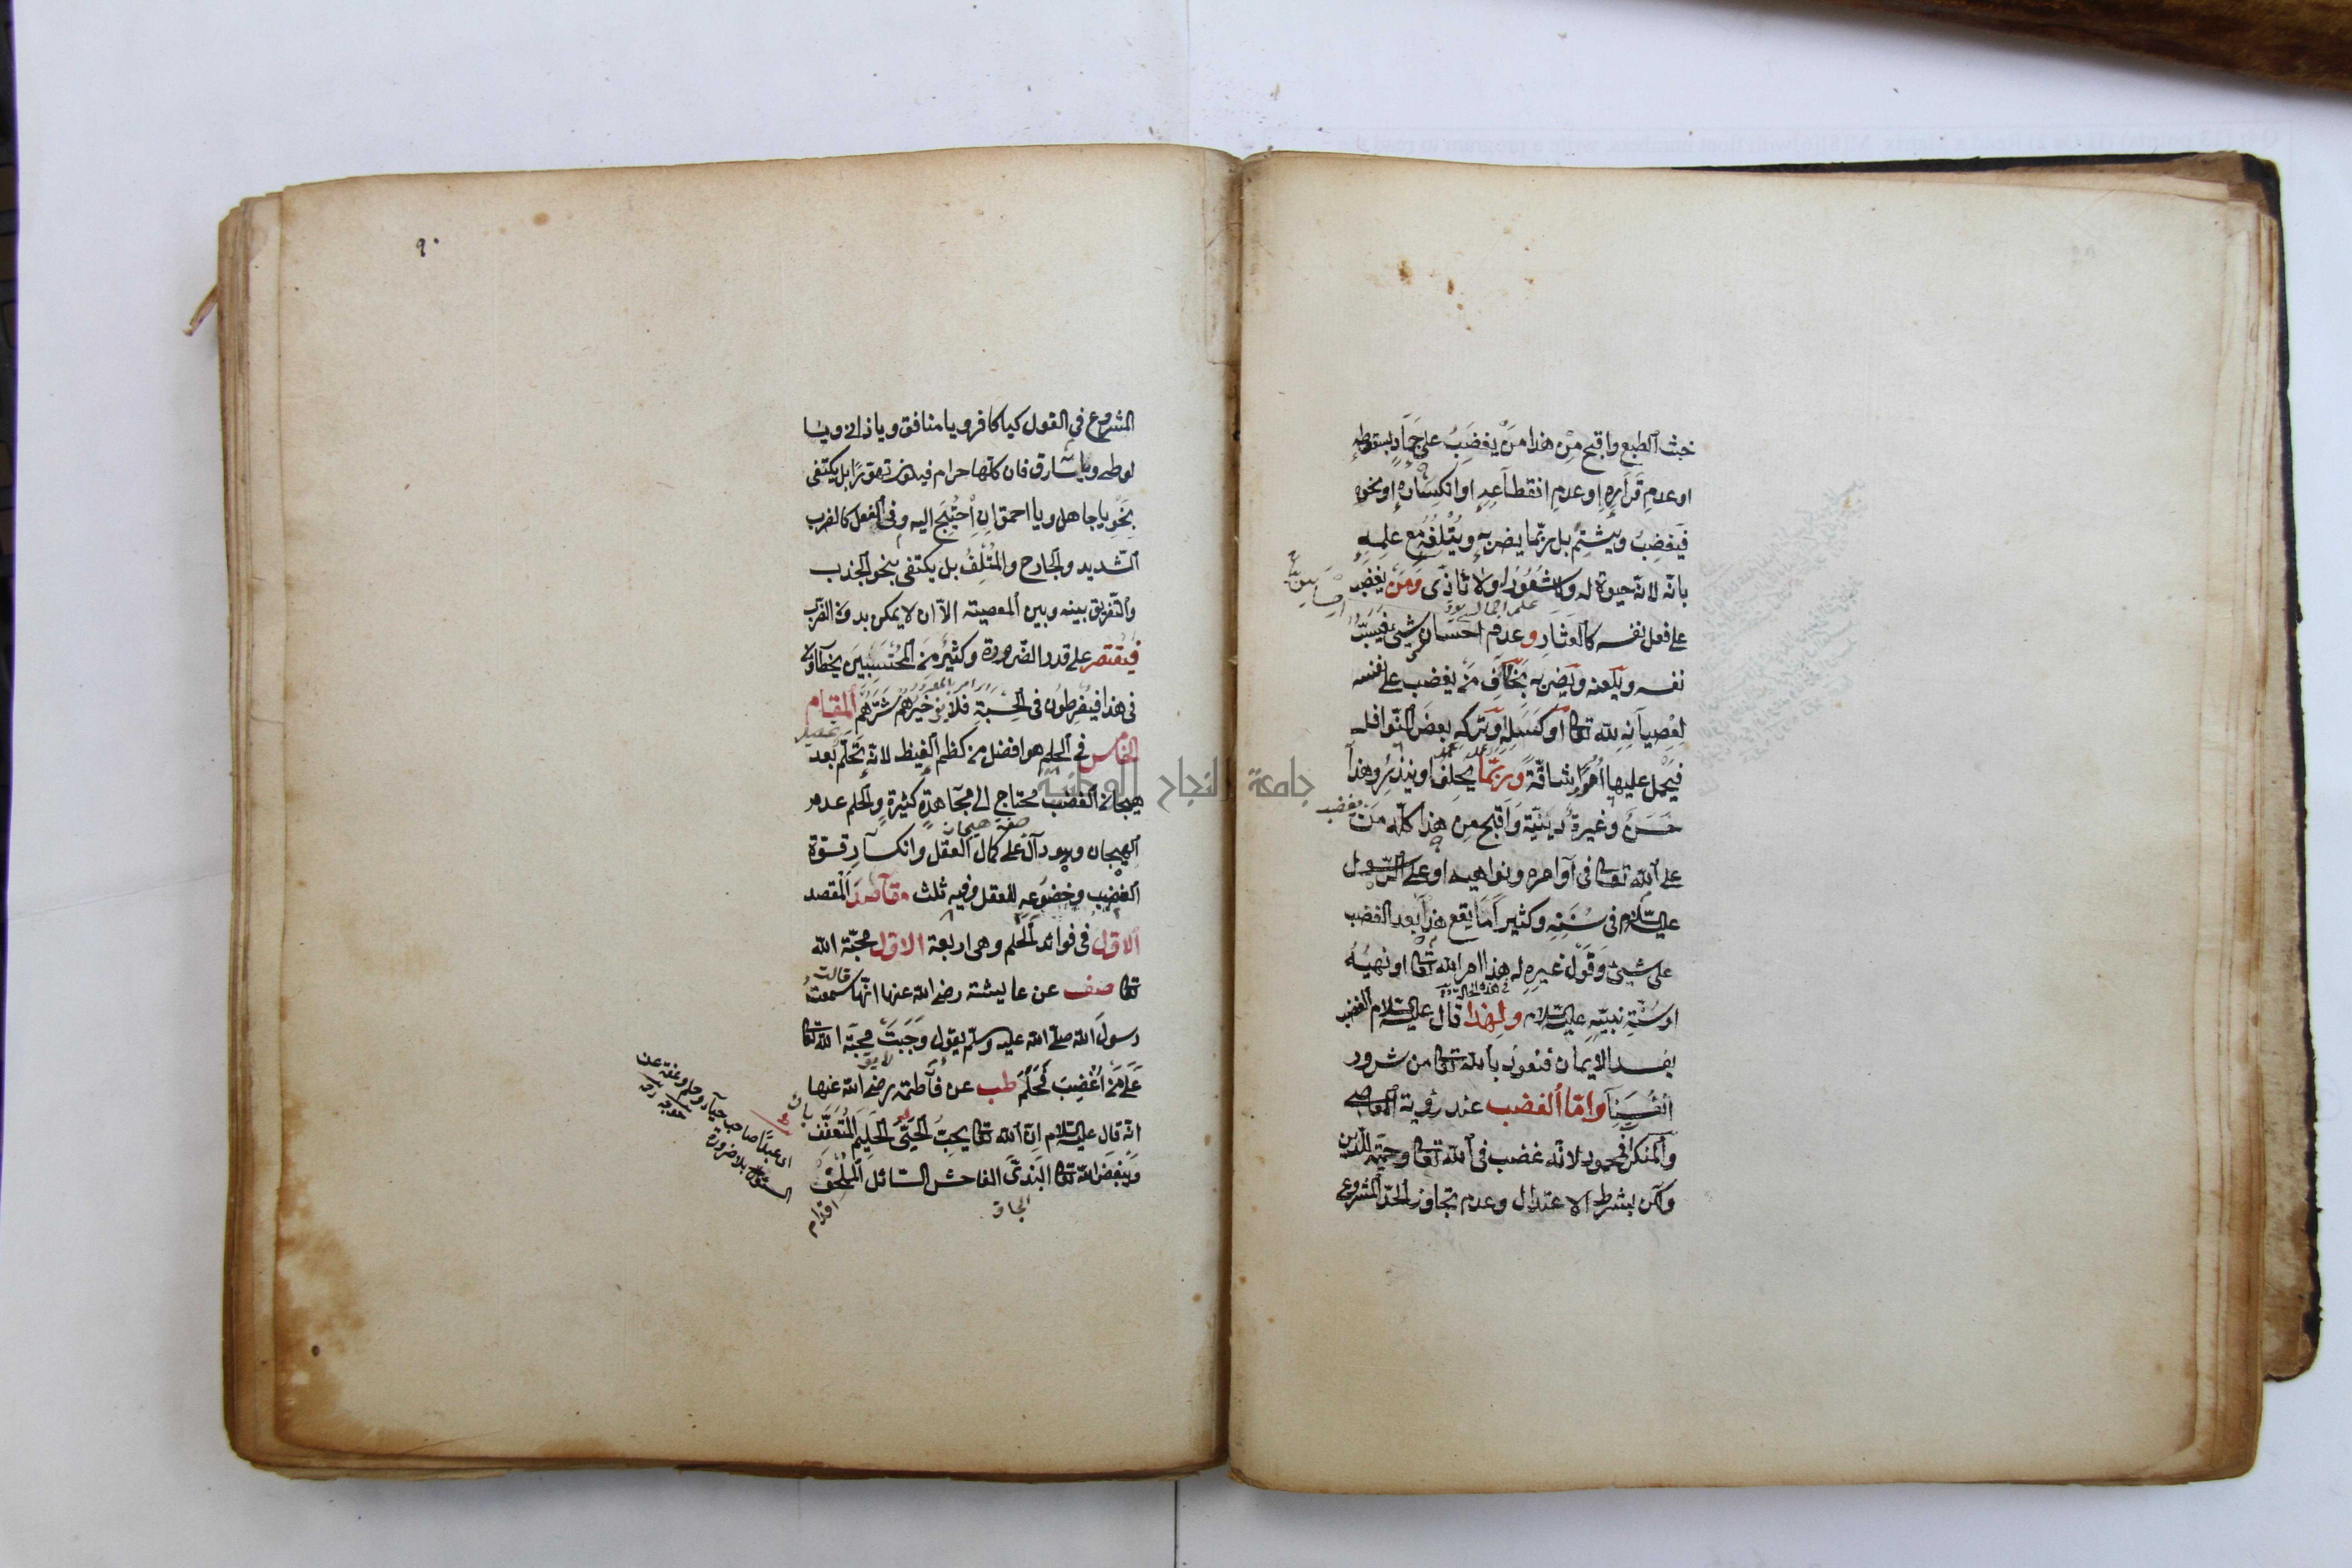 خبث الطبع واقبح من هذا من يغضب على جماد بسقوطه
او عدم قراره او عدم انقطاعه او انكساره او نحوه
فيغضب ويشتم بل ربما يضربه ويتلفه مع علمه
بانه لانه حيوة له ولا شعور ولا تأذى ومن يغضب
على فعل نفسه كالعثار وعدم احسان شئ فيسب
نفسه ويلعنه ويضربه بخلاف من يغضب على نفسه
لعصيانه لله تعا او كسله وتركه بعض النوافل
فيحمل عليها امورا شاقة وربما يحلف او ينذر وهذا
حسن وغيرة دينية واقبح من هذا كله من يغضب
على الله تعا فى اوامره ونواهيه او على الرسول
عليه السلام فى سننه وكثيرا ما يقع هذا بعد الغضب
على شئ وقول غيره له هذا امر الله تعا او نهيه
او سنة نبيه عليه السلام ولهذا قال عليه السلام الغضب
يفسد الايمان فنعوذ بالله تعا من شرور
انفسنا واما الغضب عند رؤية المعاصى
والمنكر فمحمود لانه غضب فى الله تعا وحمية للدين
ولكن بشرط الاعتدال وعدم تجاوز الحد المشروع
٩٠
المشروع فى القول كيا كافر ويا منافق ويا زانى ويا
لوطى ويا سارق فان كلها حرام فيكون تهورا بل يكتفى
بنحو يا جاهل ويا احمق ان احتيج اليه وفى الفعل كالضرب
الشديد والجارح والمتلف بل يكتفى بنحو الجذب
والتفريق بينه وبين المعصية الا ان لا يمكن بدون الضرب
فيقتصر على قدر الضرورة وكثير من المحتسبين يخطاون
فى هذا فيفرطون فى الحسبة فلا يفى خيرهم شرهم المقام
الخامس فى الحلم هو افضل من كظم الغيظ لانه تحلم بعد
هيجان الغضب محتاج الى مجاهدة كثيرة والحلم عدم
الهيجان وهو دال على كمال العقل وانكسار قوة
الغضب وخضوعه للعقل وفيه ثلث مقاصد المقصد
الاول فى فوائد الحلم وهى اربعة الاول محبة الله
تعا صف عن عايشة رضى الله عنها انها قالت سمعت
رسول الله صلى الله عليه وسلم يقول وجبت محبة الله تعا
على من اغضب فحلم طب عن فاطمة رضى الله عنها
انه قال عليه السلام ان الله تعا يحب الحيى الحليم المتعفف
ويبغض الله تعا البذى الفاحش السائل الملحف
اى عبدا صاحب حياء وحلم وعفة عن
السؤال بلا ضرورة خوجه زاده
جامعة النجاح الوطنية